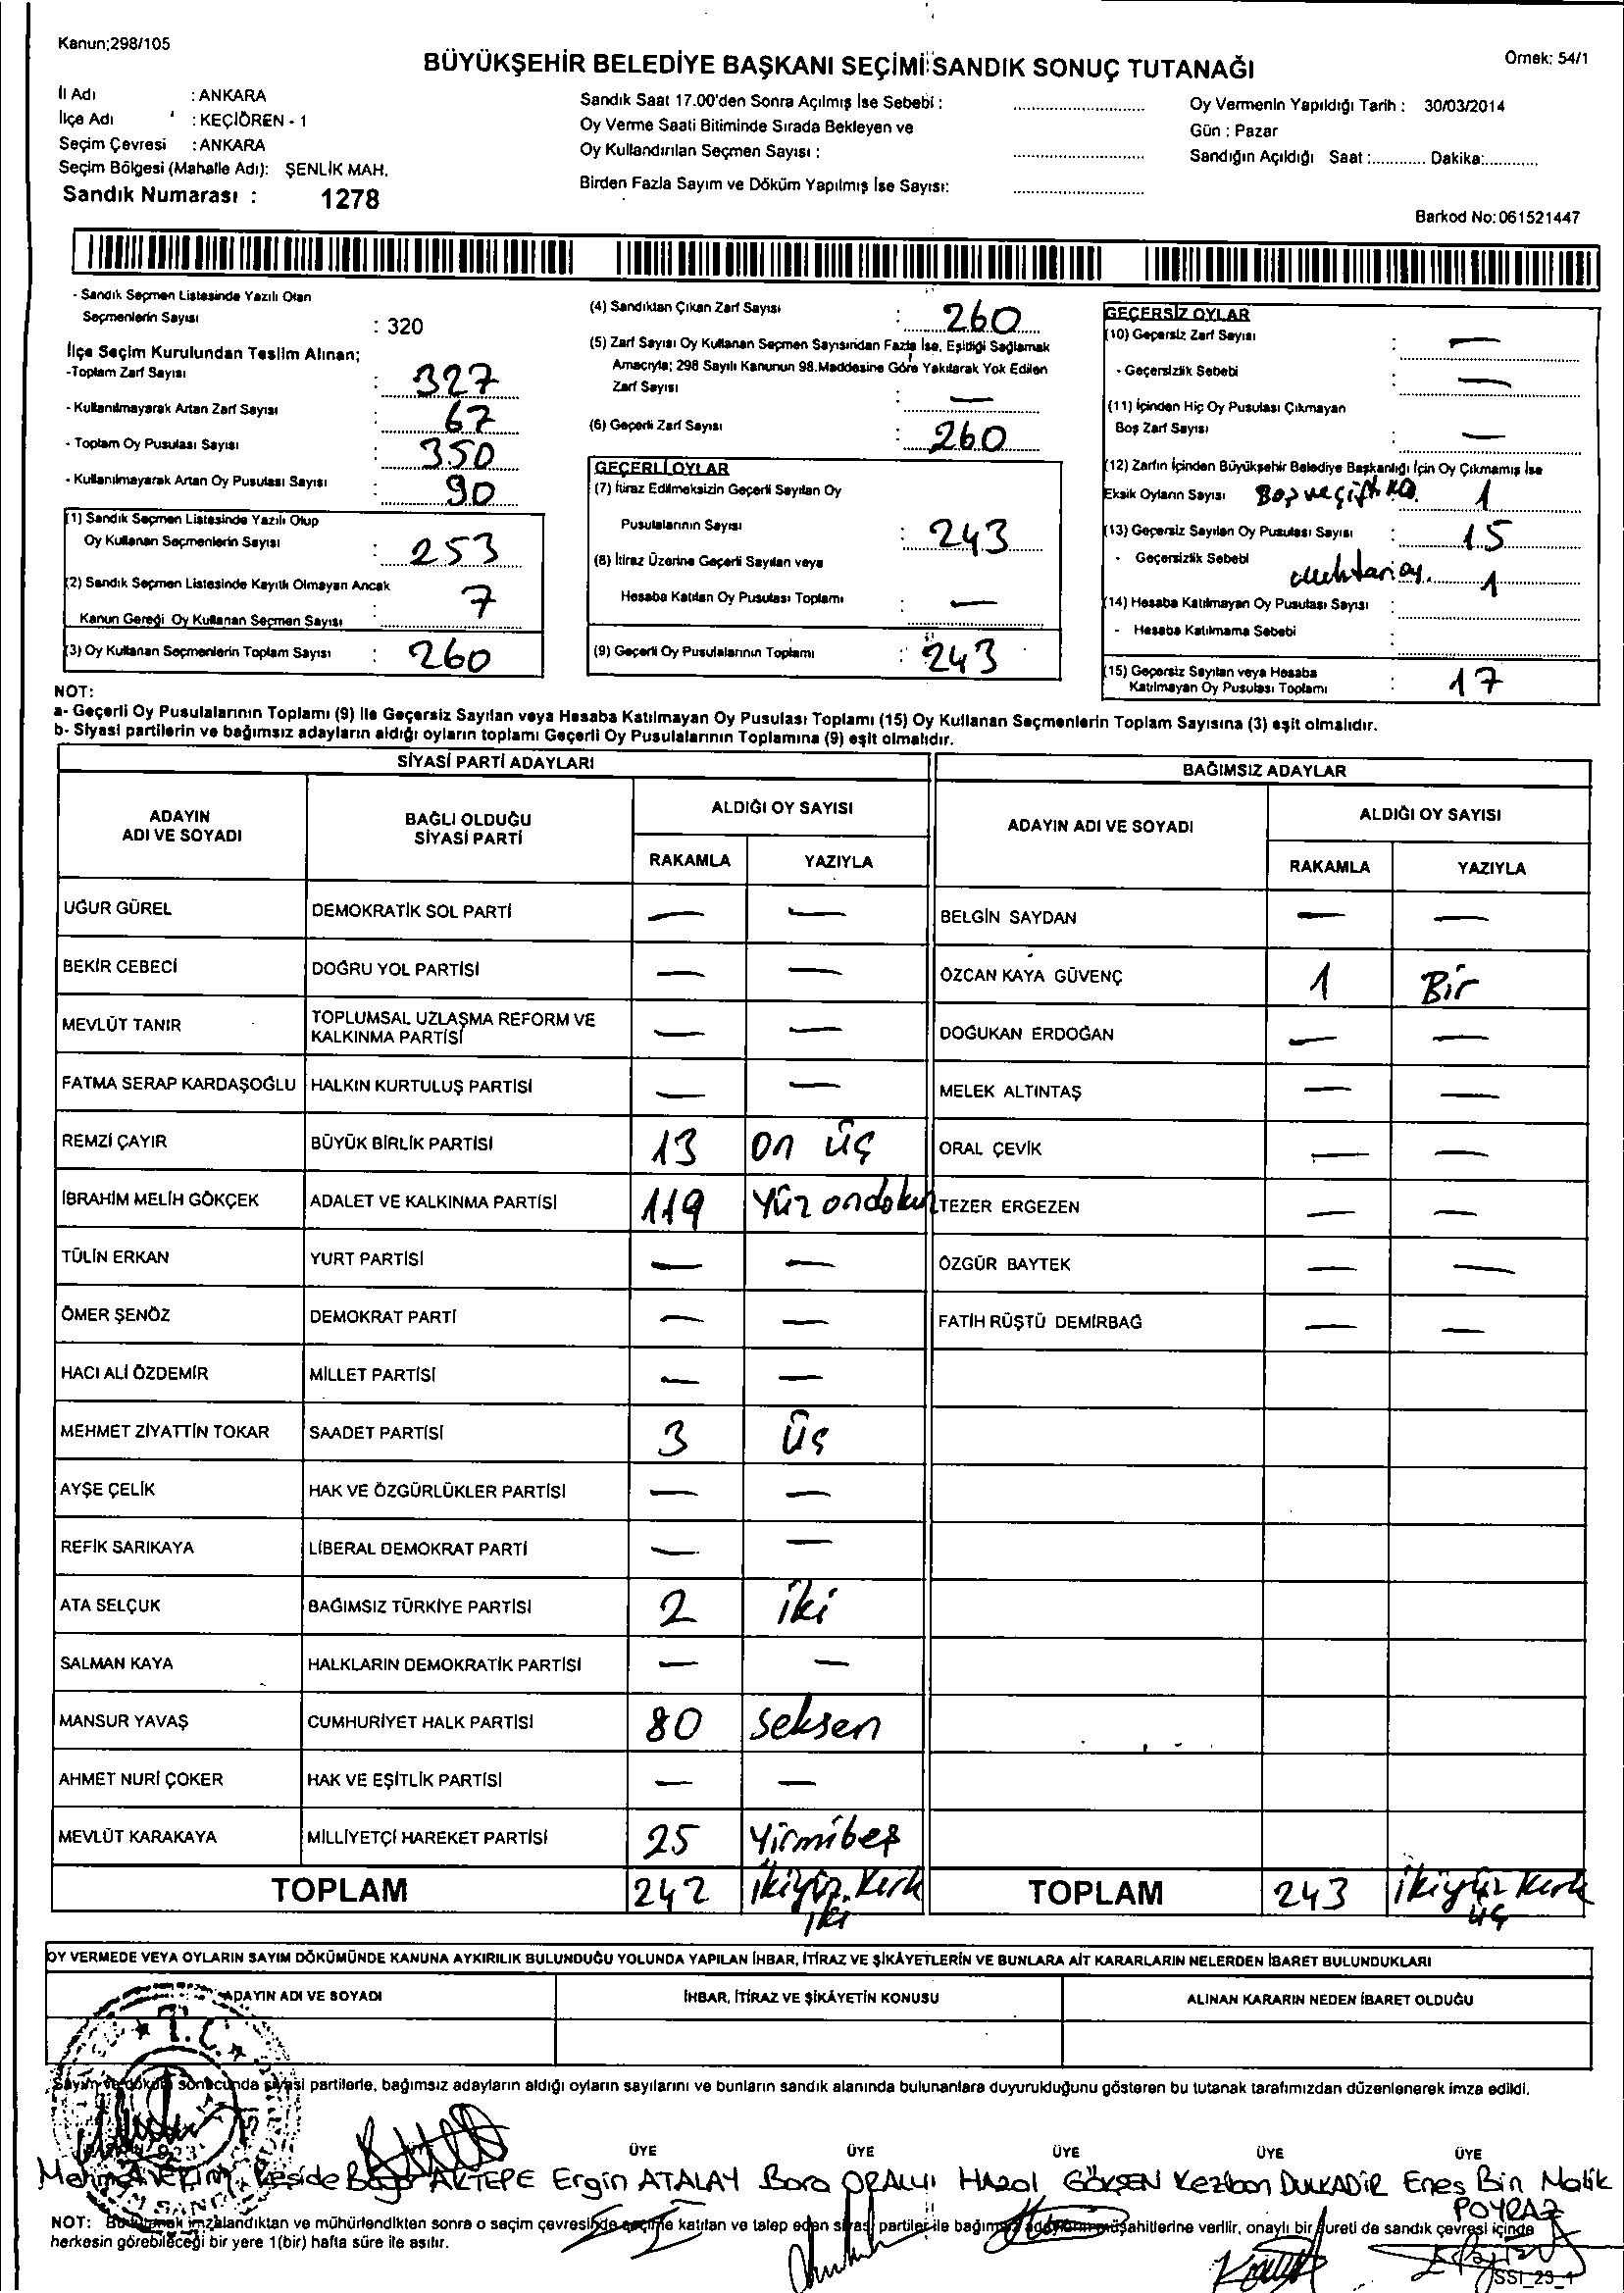 Kanun;298/105
BÜYÜKŞEHİR BELEDİYE BAŞKANI SEÇİMİ SANDIK SONUÇ TUTANAĞI
Örnek: 54/1
İl Adı : ANKARA
İlçe Adı : KEÇİÖREN - 1
Seçim Çevresi : ANKARA
Seçim Bölgesi (Mahalle Adı): ŞENLİK MAH.
Sandık Numarası : 1278
Sandık Saat 17.00'den Sonra Açılmış İse Sebebi :
Oy Verme Saati Bitiminde Sırada Bekleyen ve
Oy Kullandırılan Seçmen Sayısı :
Birden Fazla Sayım ve Döküm Yapılmış İse Sayısı:
Oy Vermenin Yapıldığı Tarih : 30/03/2014
Gün : Pazar
Sandığın Açıldığı Saat :............ Dakika:............
Barkod No:061521447
- Sandık Seçmen Listesinde Yazılı Olan
Seçmenlerin Sayısı : 320
İlçe Seçim Kurulundan Teslim Alınan;
-Toplam Zarf Sayısı : 327
- Kullanılmayarak Artan Zarf Sayısı : 67
- Toplam Oy Pusulası Sayısı : 350
- Kullanılmayarak Artan Oy Pusulası Sayısı : 90
(1) Sandık Seçmen Listesinde Yazılı Olup
Oy Kullanan Seçmenlerin Sayısı : 253
(2) Sandık Seçmen Listesinde Kayıtlı Olmayan Ancak
Kanun Gereği Oy Kullanan Seçmen Sayısı : 7
(3) Oy Kullanan Seçmenlerin Toplam Sayısı : 260
(4) Sandıktan Çıkan Zarf Sayısı : 260
(5) Zarf Sayısı Oy Kullanan Seçmen Sayısından Fazla İse, Eşitliği Sağlamak
Amacıyla; 298 Sayılı Kanunun 98.Maddesine Göre Yakılarak Yok Edilen
Zarf Sayısı : —
(6) Geçerli Zarf Sayısı : 260
GEÇERLİ OYLAR
(7) İtiraz Edilmeksizin Geçerli Sayılan Oy
Pusulalarının Sayısı : 243
(8) İtiraz Üzerine Geçerli Sayılan veya
Hesaba Katılan Oy Pusulası Toplamı : —
(9) Geçerli Oy Pusulalarının Toplamı : 243
GEÇERSİZ OYLAR
(10) Geçersiz Zarf Sayısı : —
- Geçersizlik Sebebi : —
(11) İçinden Hiç Oy Pusulası Çıkmayan
Boş Zarf Sayısı : —
(12) Zarfın İçinden Büyükşehir Belediye Başkanlığı İçin Oy Çıkmamış İse
Eksik Oyların Sayısı Boş ve çift 1
(13) Geçersiz Sayılan Oy Pusulası Sayısı : 15
- Geçersizlik Sebebi 1
(14) Hesaba Katılmayan Oy Pusulası Sayısı :
- Hesaba Katılmama Sebebi :
(15) Geçersiz Sayılan veya Hesaba
Katılmayan Oy Pusulası Toplamı : 17
NOT:
a- Geçerli Oy Pusulalarının Toplamı (9) İle Geçersiz Sayılan veya Hesaba Katılmayan Oy Pusulası Toplamı (15) Oy Kullanan Seçmenlerin Toplam Sayısına (3) eşit olmalıdır.
b- Siyasi partilerin ve bağımsız adayların aldığı oyların toplamı Geçerli Oy Pusulalarının Toplamına (9) eşit olmalıdır.
SİYASİ PARTİ ADAYLARI
ADAYIN ADI VE SOYADI BAĞLI OLDUĞU SİYASİ PARTİ ALDIĞI OY SAYISI
RAKAMLA YAZIYLA
UĞUR GÜREL DEMOKRATİK SOL PARTİ — —
BEKİR CEBECİ DOĞRU YOL PARTİSİ — —
MEVLÜT TANIR TOPLUMSAL UZLAŞMA REFORM VE KALKINMA PARTİSİ — —
FATMA SERAP KARDAŞOĞLU HALKIN KURTULUŞ PARTİSİ — —
REMZİ ÇAYIR BÜYÜK BİRLİK PARTİSİ 13 on üç
İBRAHİM MELİH GÖKÇEK ADALET VE KALKINMA PARTİSİ 119 Yüz ondokuz
TÜLİN ERKAN YURT PARTİSİ — —
ÖMER ŞENÖZ DEMOKRAT PARTİ — —
HACI ALİ ÖZDEMİR MİLLET PARTİSİ — —
MEHMET ZİYATTİN TOKAR SAADET PARTİSİ 3 üç
AYŞE ÇELİK HAK VE ÖZGÜRLÜKLER PARTİSİ — —
REFİK SARIKAYA LİBERAL DEMOKRAT PARTİ — —
ATA SELÇUK BAĞIMSIZ TÜRKİYE PARTİSİ 2 iki
SALMAN KAYA HALKLARIN DEMOKRATİK PARTİSİ — —
MANSUR YAVAŞ CUMHURİYET HALK PARTİSİ 80 seksen
AHMET NURİ ÇOKER HAK VE EŞİTLİK PARTİSİ — —
MEVLÜT KARAKAYA MİLLİYETÇİ HAREKET PARTİSİ 25 Yirmibeş
TOPLAM 242 ikiyüz Kırk iki
BAĞIMSIZ ADAYLAR
ADAYIN ADI VE SOYADI ALDIĞI OY SAYISI
RAKAMLA YAZIYLA
BELGİN SAYDAN — —
ÖZCAN KAYA GÜVENÇ 1 Bir
DOĞUKAN ERDOĞAN — —
MELEK ALTINTAŞ — —
ORAL ÇEVİK — —
TEZER ERGEZEN — —
ÖZGÜR BAYTEK — —
FATİH RÜŞTÜ DEMİRBAĞ — —
TOPLAM 243 ikiyüz Kırk üç
OY VERMEDE VEYA OYLARIN SAYIM DÖKÜMÜNDE KANUNA AYKIRILIK BULUNDUĞU YOLUNDA YAPILAN İHBAR, İTİRAZ VE ŞİKÂYETLERİN VE BUNLARA AİT KARARLARIN NELERDEN İBARET BULUNDUKLARI
ADAYIN ADI VE SOYADI İHBAR, İTİRAZ VE ŞİKÂYETİN KONUSU ALINAN KARARIN NEDEN İBARET OLDUĞU
T.C.
Sayım ve döküm sonucunda siyasi partilerle, bağımsız adayların aldığı oyların sayılarını ve bunların sandık alanında bulunanlara duyurulduğunu gösteren bu tutanak tarafımızdan düzenlenerek imza edildi.
ÜYE ÜYE ÜYE ÜYE ÜYE
AKTEPE Ergin ATALAY Bora ORALLI Hazal GÖKŞEN Kezban DULKADİR Enes Bin Malik
POYRAZ
NOT: Bu tutanak imzalandıktan ve mühürlendikten sonra o seçim çevresinde seçime katılan ve talep eden siyasi partiler ile bağımsız adayların müşahitlerine verilir, onaylı bir sureti de sandık çevresi içinde
herkesin görebileceği bir yere 1(bir) hafta süre ile asılır.
SSI_23_1